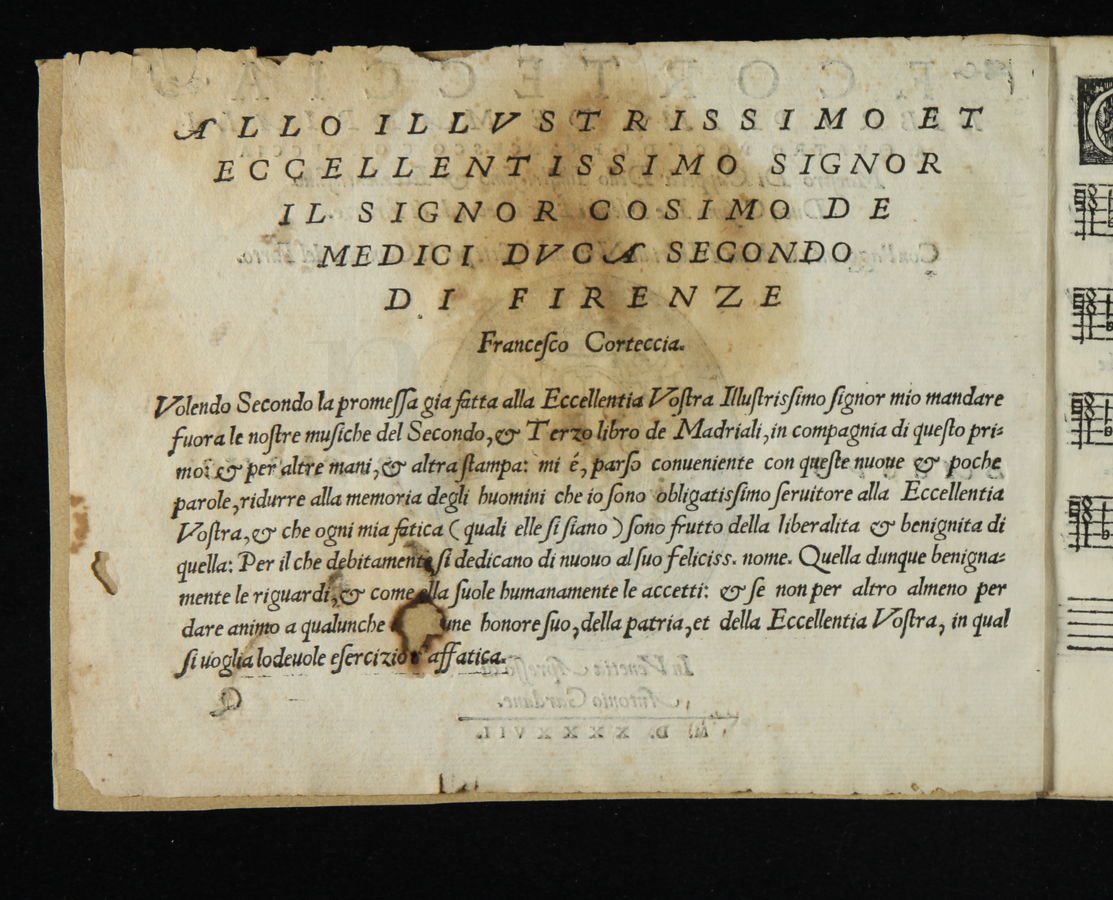 ALLO ILLVSTRISSIMO ET
ECCELLENTISSIMO SIGNOR
IL SIGNOR COSIMO DE
MEDICI DVCA SECONDO
DI FIRENZE
Francesco Corteccia.
Volendo Secondo la promessa gia fatta alla Eccellentia Vostra Illustrissimo signor mio mandare
fuora le nostre musiche del Secondo, & Terzo libro de Madriali, in compagnia di questo pri-
mo: & per altre mani, & altra stampa: mi é, parso conueniente con queste nuoue & poche
parole, ridurre alla memoria degli huomini che io sono obligatissimo seruitore alla Eccellentia
Vostra, & che ogni mia fatica ( quali elle si siano ) sono frutto della liberalita & benignita di
quella: Per il che debitamente si dedicano di nuouo al suo feliciss. nome. Quella dunque benigna-
mente le riguardi, & come ella suole humanamente le accetti: & se non per altro almeno per
dare animo a qualunche honore suo, della patria, et della Eccellentia Vostra, in qual
si uoglia lodeuole esercizio s'affatica.